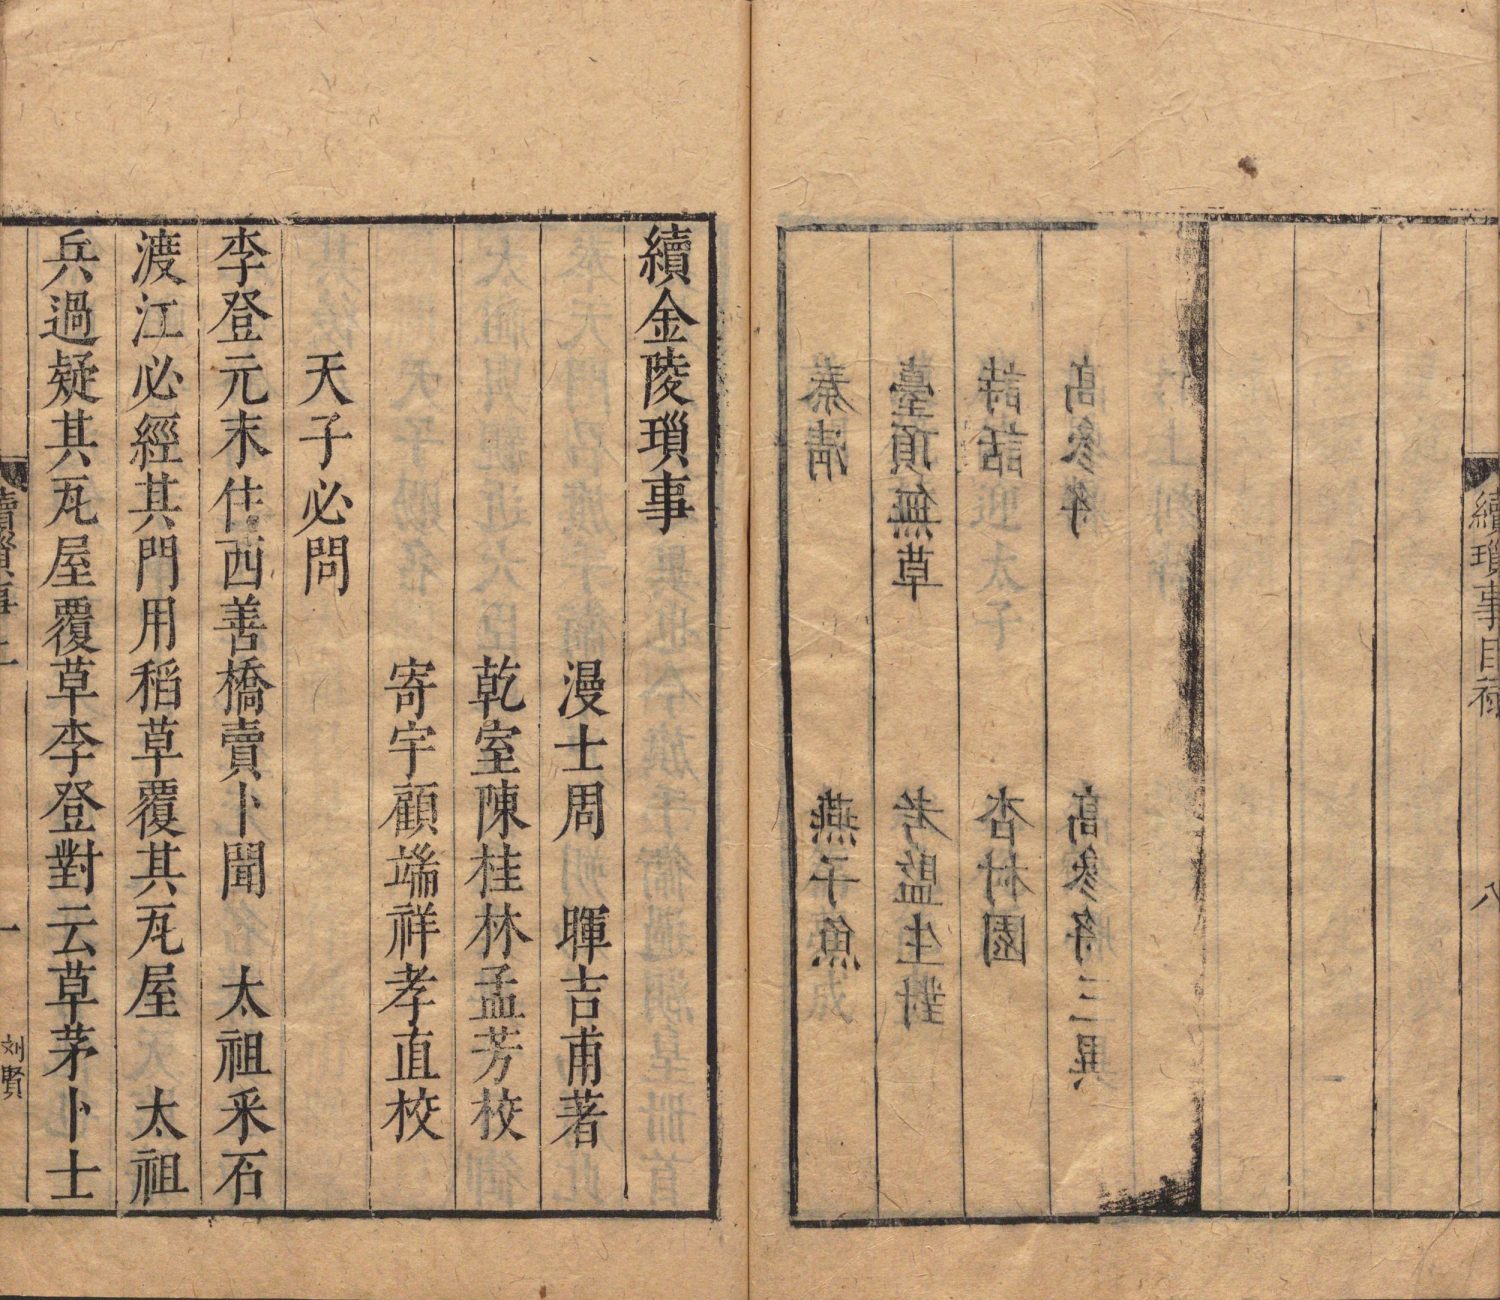 續瑣事目祿 八
高參将 高參将三異
詩話 杏村園
臺頂無草 考監生對
燕子魚
續金陵瑣事
漫士周 暉吉甫著
乾室陳桂林孟芳校
寄宇顧端祥孝直校
天子必問
李登元末住西善橋賣卜聞 太祖釆石
渡江必經其門用稻草覆其瓦屋 太祖
兵過疑其瓦屋覆草李登對云草茅卜士
續瑣事上 一 刘賢